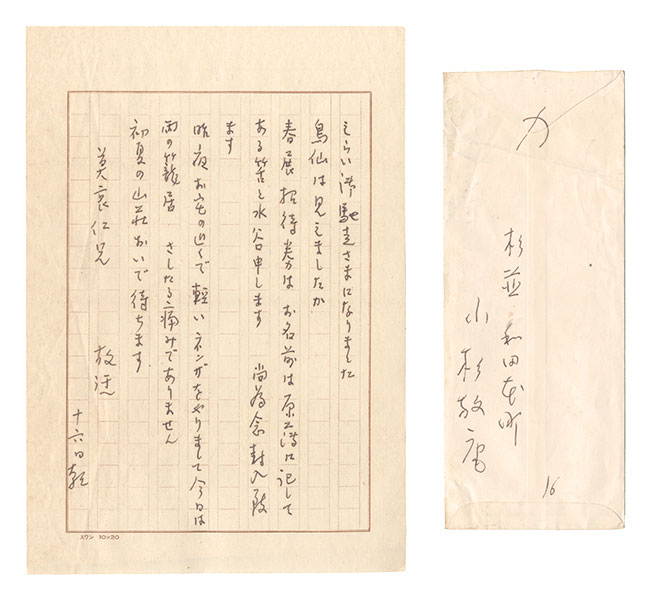 えらい御馳走さまになりました
鳥仙は見えましたか
春展招待券は お名前は原簿に記して
ある筈と水谷申します 尚為念封入致
ます
昨夜お宅の近くで軽いネンザをやりまして今日は
雨の籠居 さしたる痛みでありません
初夏の山荘おいで待ちます
放庵
莫哀仁兄
十六日朝
スワン 10×20
杉並 和田本町
小杉放庵
16